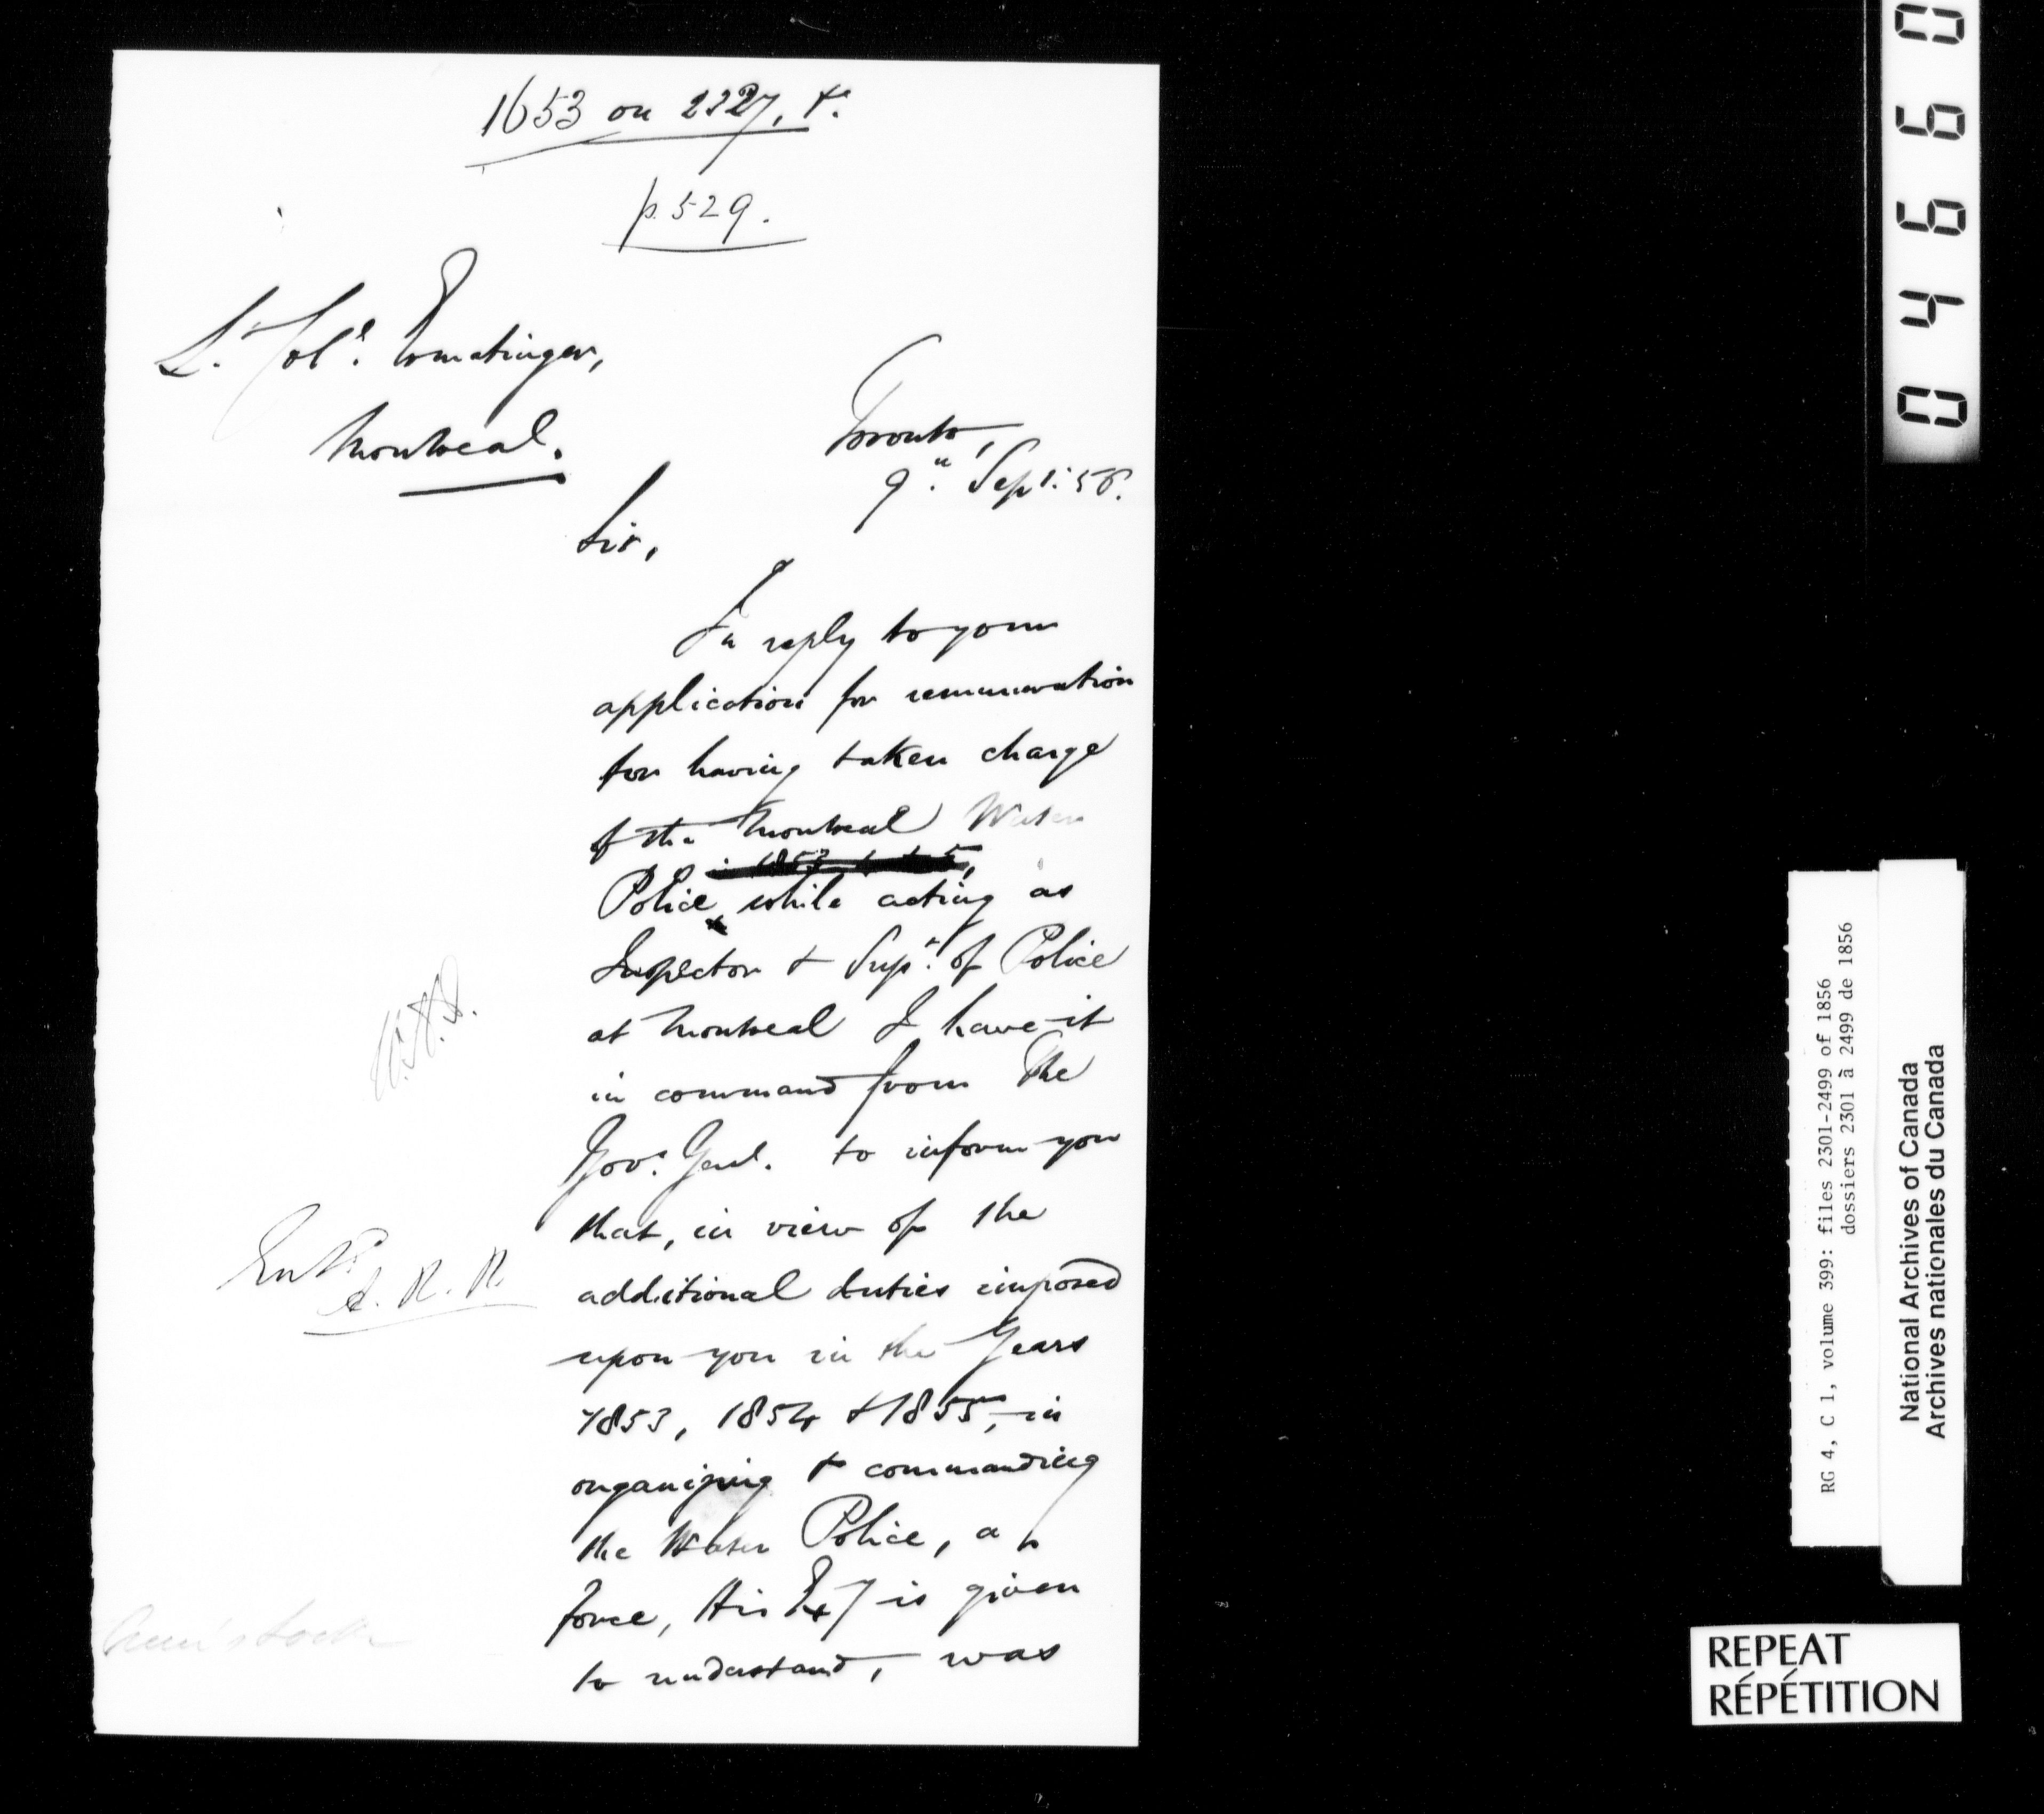 1653 on 2327, &c.
p. 529.
Lt. Colo. Ermatinger,
Montreal.
Toronto,
9th. Sept: 56.
Sir,
In reply to your
application for remuneration
for having taken charge
of the Montreal Water
Police while acting as
Inspector & Supt. of Police
at Montreal I have it
in command from The
Govr. Genl. to inform you
that, in view of the
additional duties imposed
upon you in the Years
1853, 1854 & 1855, in
organizing & commanding
the Water Police, a
force, His Exy is given
to understand, was
Entd.
A. R. R.
04660
RG 4, C 1, volume 399: files 2301-2499 of 1856
dossiers 2301 à 2499 de 1856
National Archives of Canada
Archives nationales du Canada
REPEAT
RÉPÉTITION